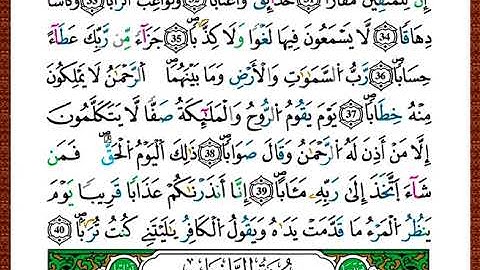 إِنَّ لِلْمُتَّقِينَ مَفَازًا ﴿٣١﴾ حَدَآئِقَ وَأَعْنَابًا ﴿٣٢﴾ وَكَوَاعِبَ أَتْرَابًا ﴿٣٣﴾ وَكَأْسًا
دِهَاقًا ﴿٣٤﴾ لَّا يَسْمَعُونَ فِيهَا لَغْوًا وَلَا كِذَّٰبًا ﴿٣٥﴾ جَزَآءً مِّن رَّبِّكَ عَطَآءً
حِسَابًا ﴿٣٦﴾ رَّبُّ السَّمَٰوَٰتِ وَالْأَرْضِ وَمَا بَيْنَهُمَا الرَّحْمَٰنُ لَا يَمْلِكُونَ
مِنْهُ خِطَابًا ﴿٣٧﴾ يَوْمَ يَقُومُ الرُّوحُ وَالْمَلَٰٓئِكَةُ صَفًّا لَّا يَتَكَلَّمُونَ
إِلَّا مَنْ أَذِنَ لَهُ الرَّحْمَٰنُ وَقَالَ صَوَابًا ﴿٣٨﴾ ذَٰلِكَ الْيَوْمُ الْحَقُّ فَمَن
شَآءَ اتَّخَذَ إِلَىٰ رَبِّهِۦ مَـَٔابًا ﴿٣٩﴾ إِنَّآ أَنذَرْنَٰكُمْ عَذَابًا قَرِيبًا يَوْمَ
يَنظُرُ الْمَرْءُ مَا قَدَّمَتْ يَدَاهُ وَيَقُولُ الْكَافِرُ يَٰلَيْتَنِى كُنتُ تُرَٰبًا ﴿٤٠﴾